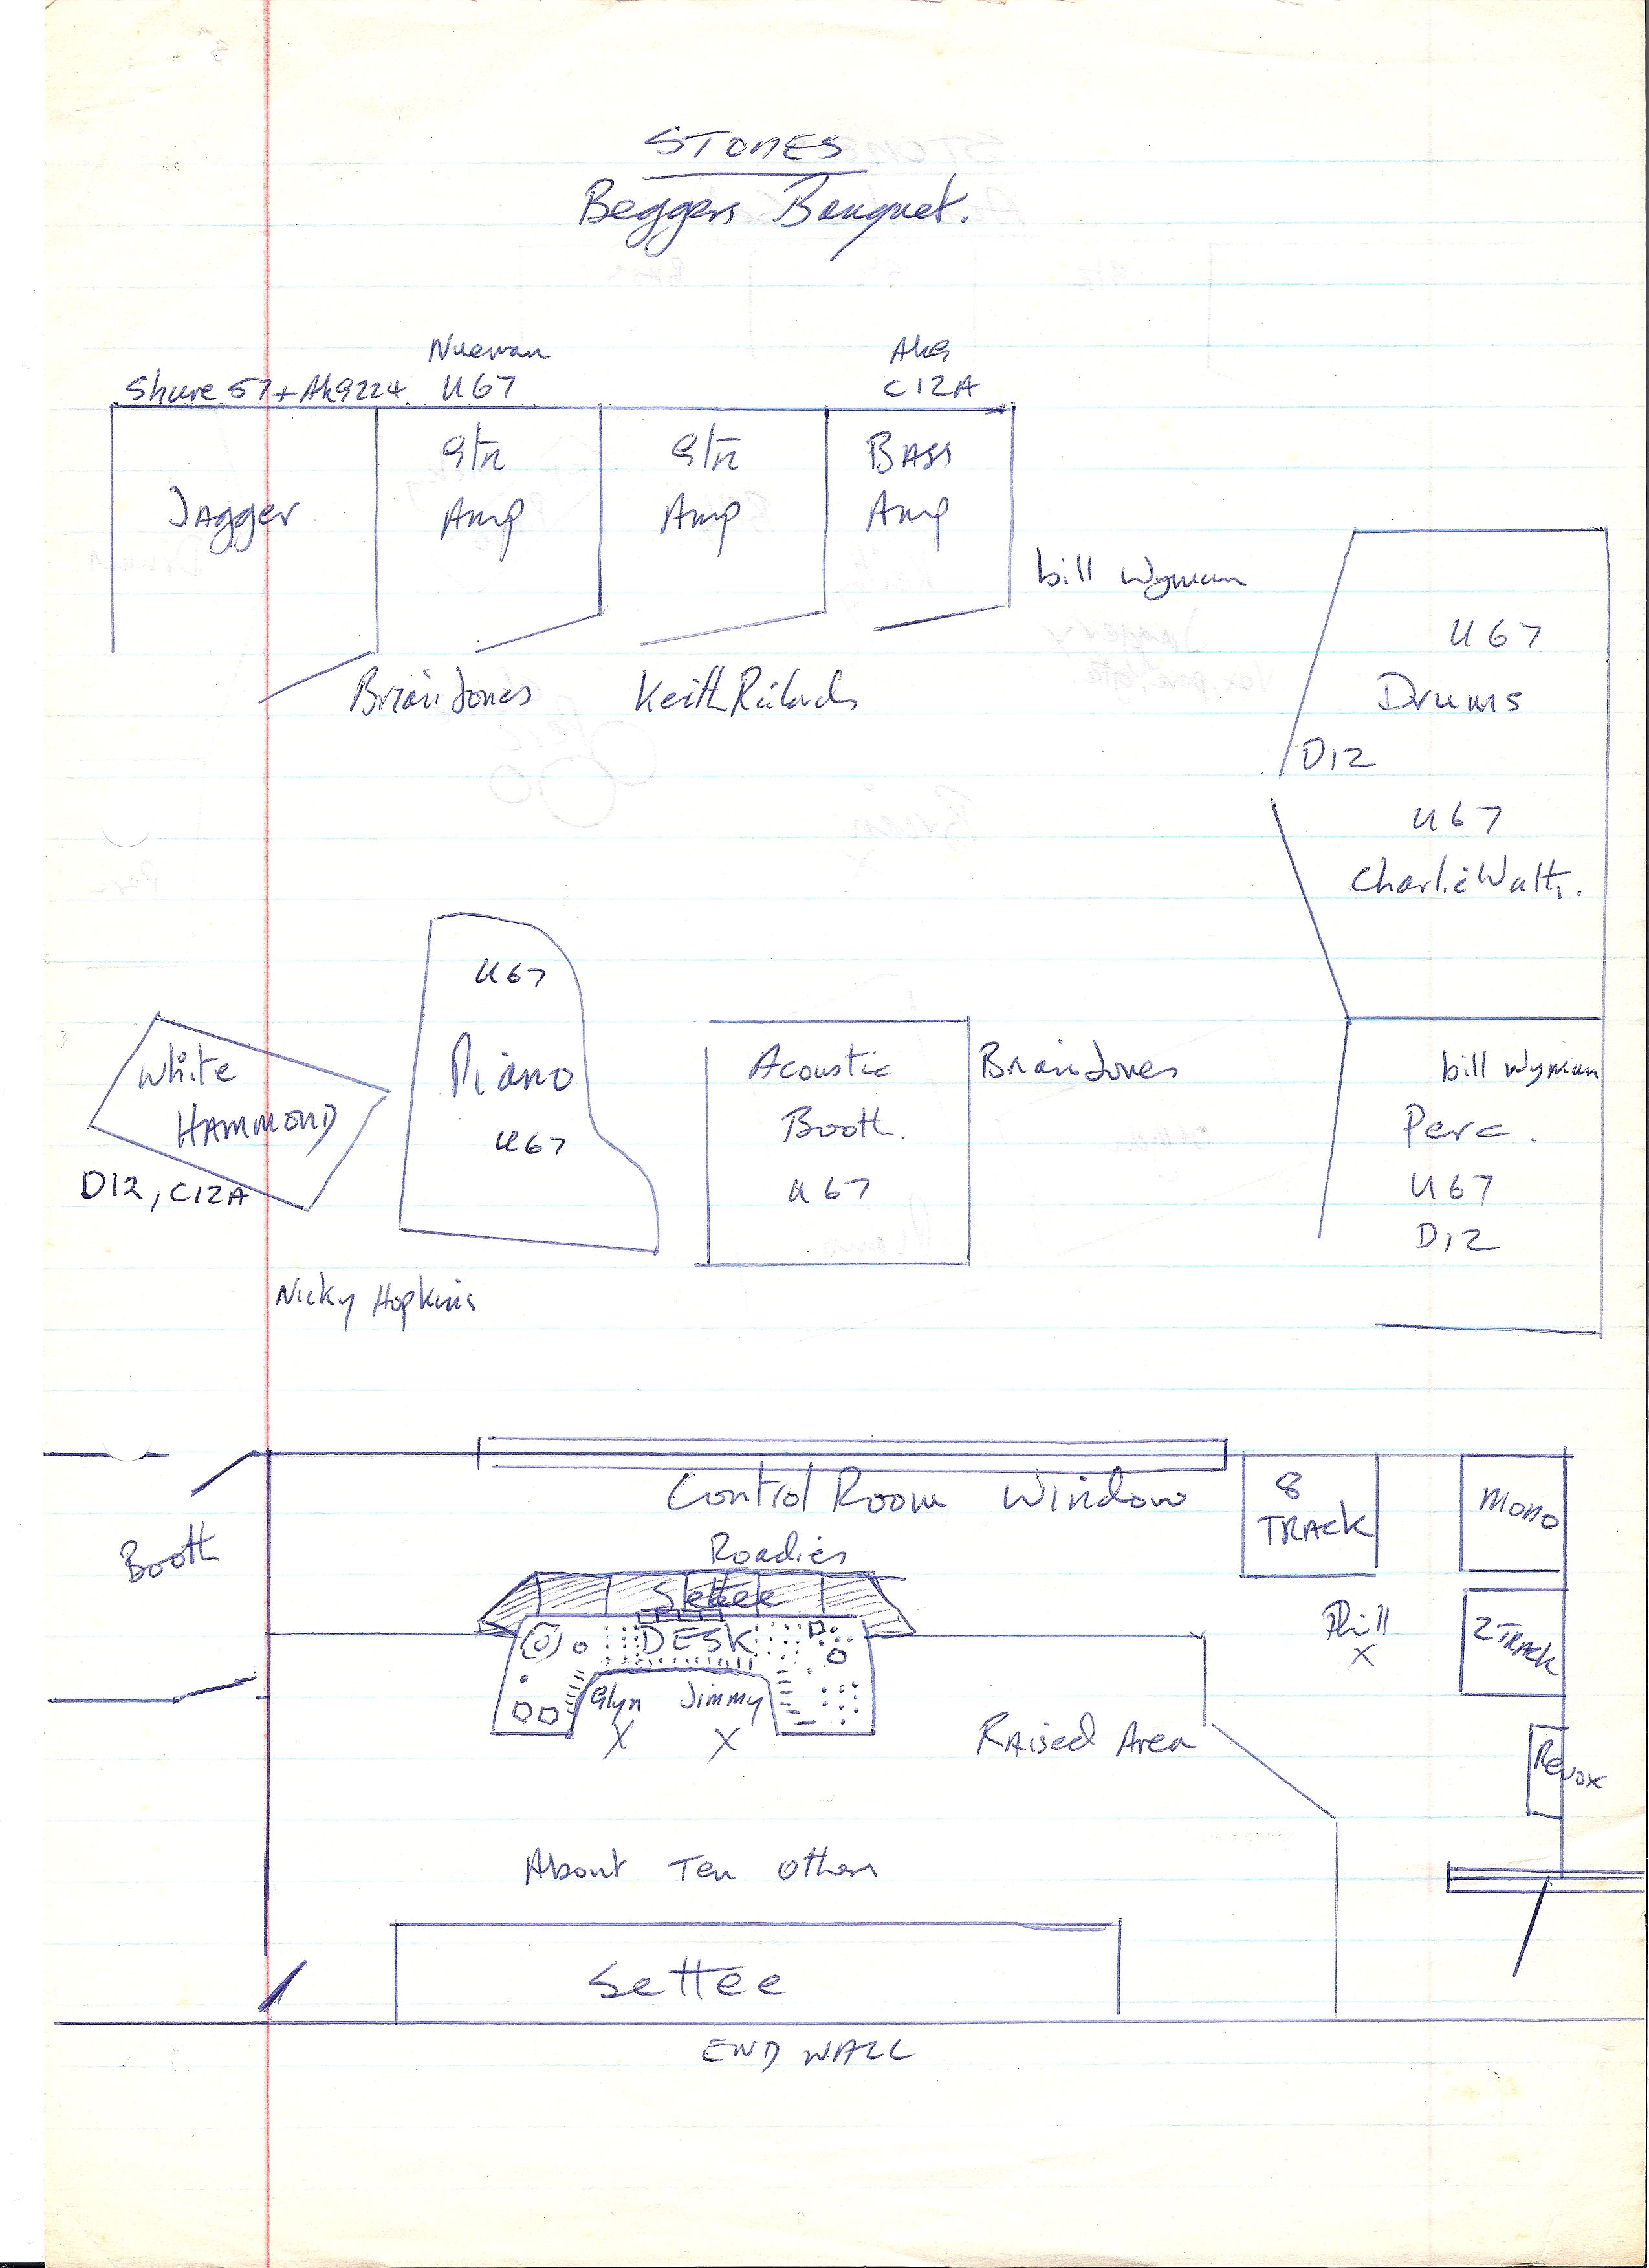 STONES
Beggers Banquet.
Nueman
Akg
Shure 57 + Akg 224
U67
C12A
Jagger
Gtr
Amp
Gtr
Amp
BASS
Amp
bill Wyman
Brian Jones
Keith Richards
U67
Drums
D12
U67
Charlie Watts.
U67
Piano
U67
White
HAMMOND
D12, C12A
Nicky Hopkins
Acoustic
Booth.
U67
Brian Jones
bill Wyman
Perc.
U67
D12
Control Room Window
8
TRACK
Mono
Booth
Roadies
Settee
DESK
Glyn
Jimmy
X
X
Phill
X
2 TRACK
Raised Area
Revox
About Ten others
Settee
END WALL